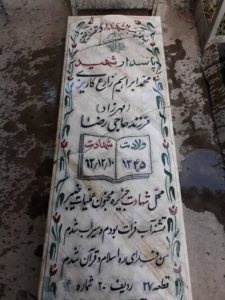 پاسدار شهید
محمد ابراهیم زارع کاریزی
(مهرزاد)
فرزند حاجی رضا
ولادت شهادت
۱۳۴۵ ۶۲/۱۲/۱۰
محل شهادت جزیره مجنون عملیات خیبر
تشنه آب فرات بودم و سیراب شدم
من فدای ره اسلام و قرآن شدم
قطعه ۲۷ ردیف ۲۰ شماره